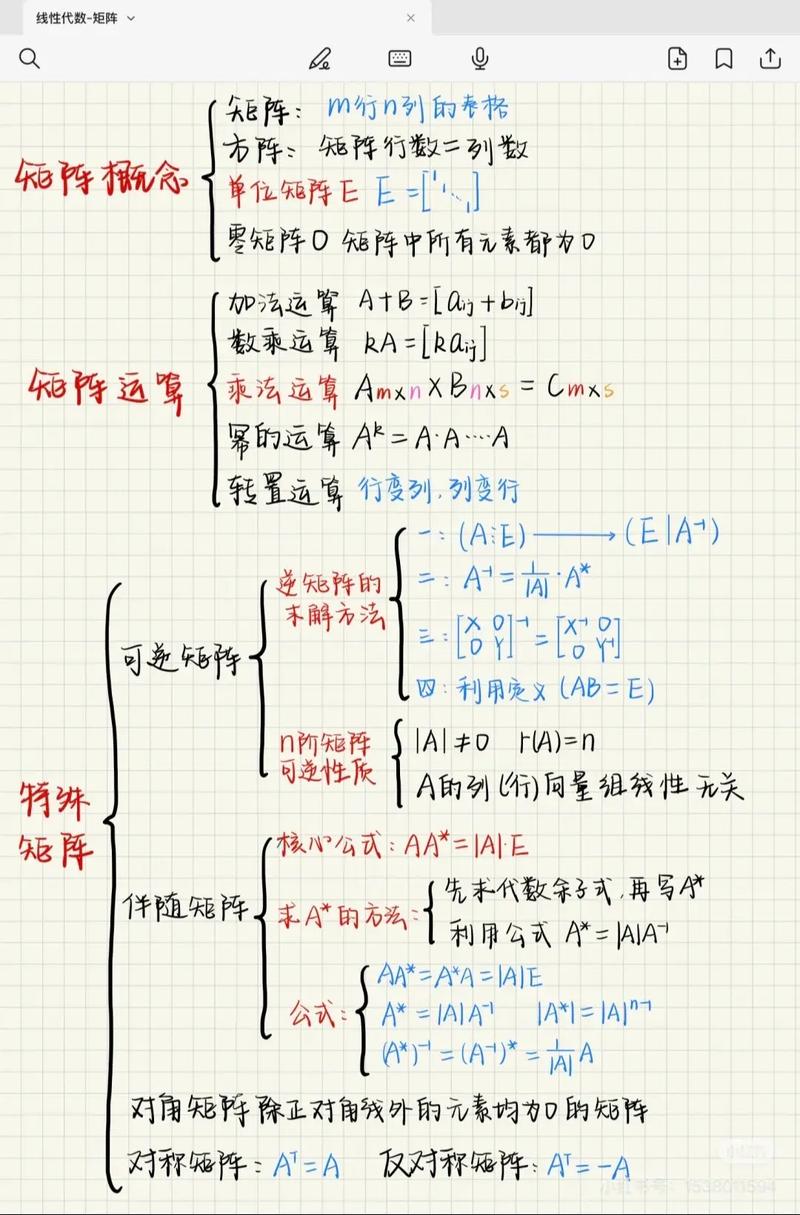 线性代数-矩阵
矩阵概念
矩阵: m行n列的表格
方阵: 矩阵行数=列数
单位矩阵E E=[1 ⋱ 1]
零矩阵O 矩阵中所有元素都为0
矩阵运算
加法运算 A+B=[aij+bij]
数乘运算 kA=[kaij]
乘法运算 Am×n×Bn×s=Cm×s
幂的运算 A^k=A·A····A
转置运算 行变列,列变行
特殊
矩阵
可逆矩阵
逆矩阵的
求解方法
一:(A⋮E)⟶(E|A⁻¹)
二: A⁻¹=1/|A|·A*
三:[X 0
0 Y]⁻¹=[X⁻¹ 0
0 Y⁻¹]
四:利用定义(AB=E)
n阶矩阵
可逆性质
|A|≠0 r(A)=n
A的列(行)向量组线性无关
伴随矩阵
核心公式:AA*=|A|·E
求A*的方法:
先求代数余子式,再写A*
利用公式 A*=|A|A⁻¹
公式:
AA*=A*A=|A|E
A*=|A|A⁻¹ |A*|=|A|ⁿ⁻¹
(A*)⁻¹=(A⁻¹)*=1/|A| A
对角矩阵 除正对角线外的元素均为0的矩阵
对称矩阵:Aᵀ=A 反对称矩阵:Aᵀ=-A
小红书
小红书号:1538011594